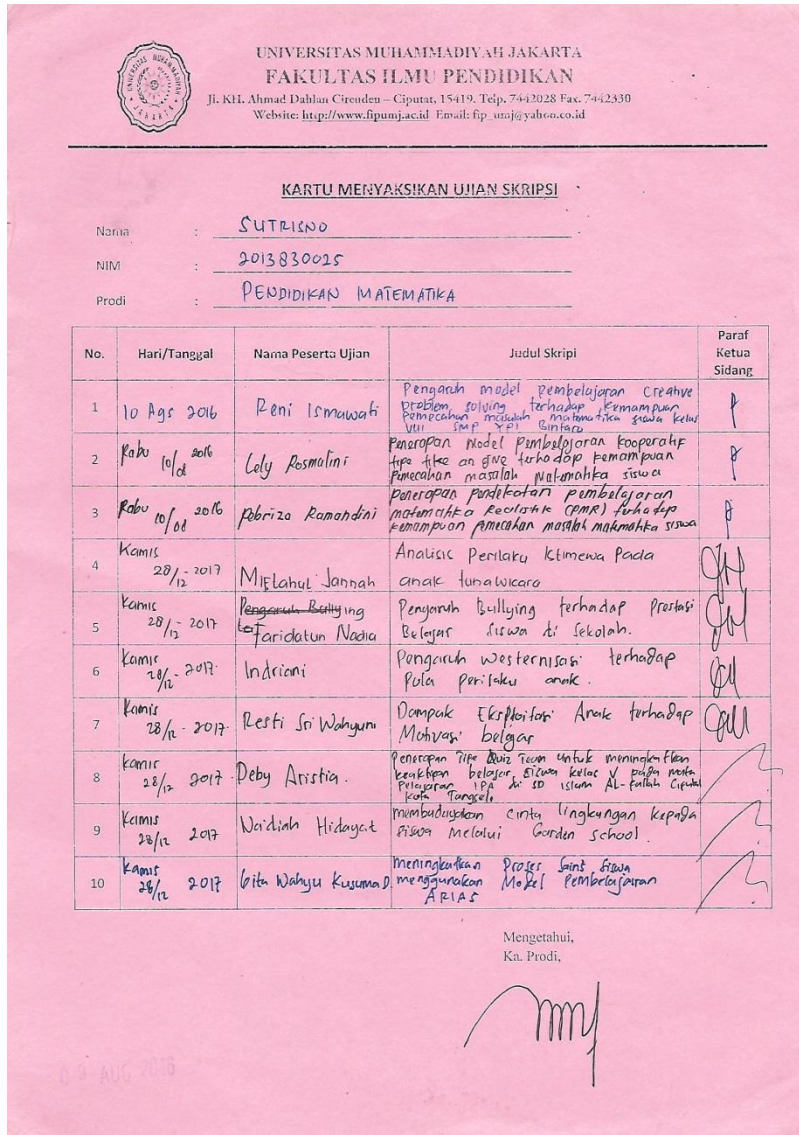 UNIVERSITAS MUHAMMADIYAH JAKARTA
FAKULTAS ILMU PENDIDIKAN
Jl. KH. Ahmad Dahlan Cireudeu – Ciputat, 15419. Telp. 7442028 Fax. 7442330
Website: http://www.fipumj.ac.id Email: fip_umj@yahoo.co.id
KARTU MENYAKSIKAN UJIAN SKRIPSI
Nama : SUTRISNO
NIM : 2013830025
Prodi : PENDIDIKAN MATEMATIKA
No. Hari/Tanggal Nama Peserta Ujian Judul Skipsi Paraf Ketua Sidang
1 10 Ags 2016 Reni Ismawati
Pengaruh model pembelajaran Creative
problem solving terhadap kemampuan
pemecahan masalah matematika siswa kelas
VIII SMP YPI Bintaro
2 Rabu 10/08 2016 Lely Rosmalini
Penerapan Model Pembelajaran kooperatif
tipe take an give terhadap kemampuan
pemecahan masalah Matematika siswa
3 Rabu 10/08 2016 Febriza Ramandini
penerapan pendekatan pembelajaran
matematika Realistik (PMR) terhadap
kemampuan pemecahan masalah matematika siswa
4 Kamis 28/12 - 2017 Miftahul Jannah
Analisis Perilaku Istimewa Pada
anak tunawicara
5 Kamis 28/12 - 2017 Pengaruh Bullying
Faridatun Nadia
Pengaruh Bullying terhadap Prestasi
Belajar Siswa di Sekolah.
6 Kamis 28/12 - 2017. Indriani
Pengaruh Westernisasi terhadap
Pola perilaku anak.
7 Kamis 28/12 - 2017. Resti Sri Wahyuni
Dampak Eksploitasi Anak terhadap
Motivasi belajar
8 Kamis 28/12 2017 Deby Aristia.
Penerapan Tipe Quiz Team untuk meningkatkan
keaktipan belajar siswa kelas V pada mata
Pelajaran IPA di SD Islam AL-Fallah Ciputat
Kota Tangsel.
9 Kamis 28/12 2017 Waidiah Hidayat
membudayakan cinta lingkungan kepada
siswa Melalui Garden School
10 Kamis 28/12 2017 Gita Wahyu Kusuma D.
meningkatkan Proses Saint Siswa
menggunakan Model Pembelajaran
ARIAS
Mengetahui,
Ka. Prodi,
09 AUG 2016